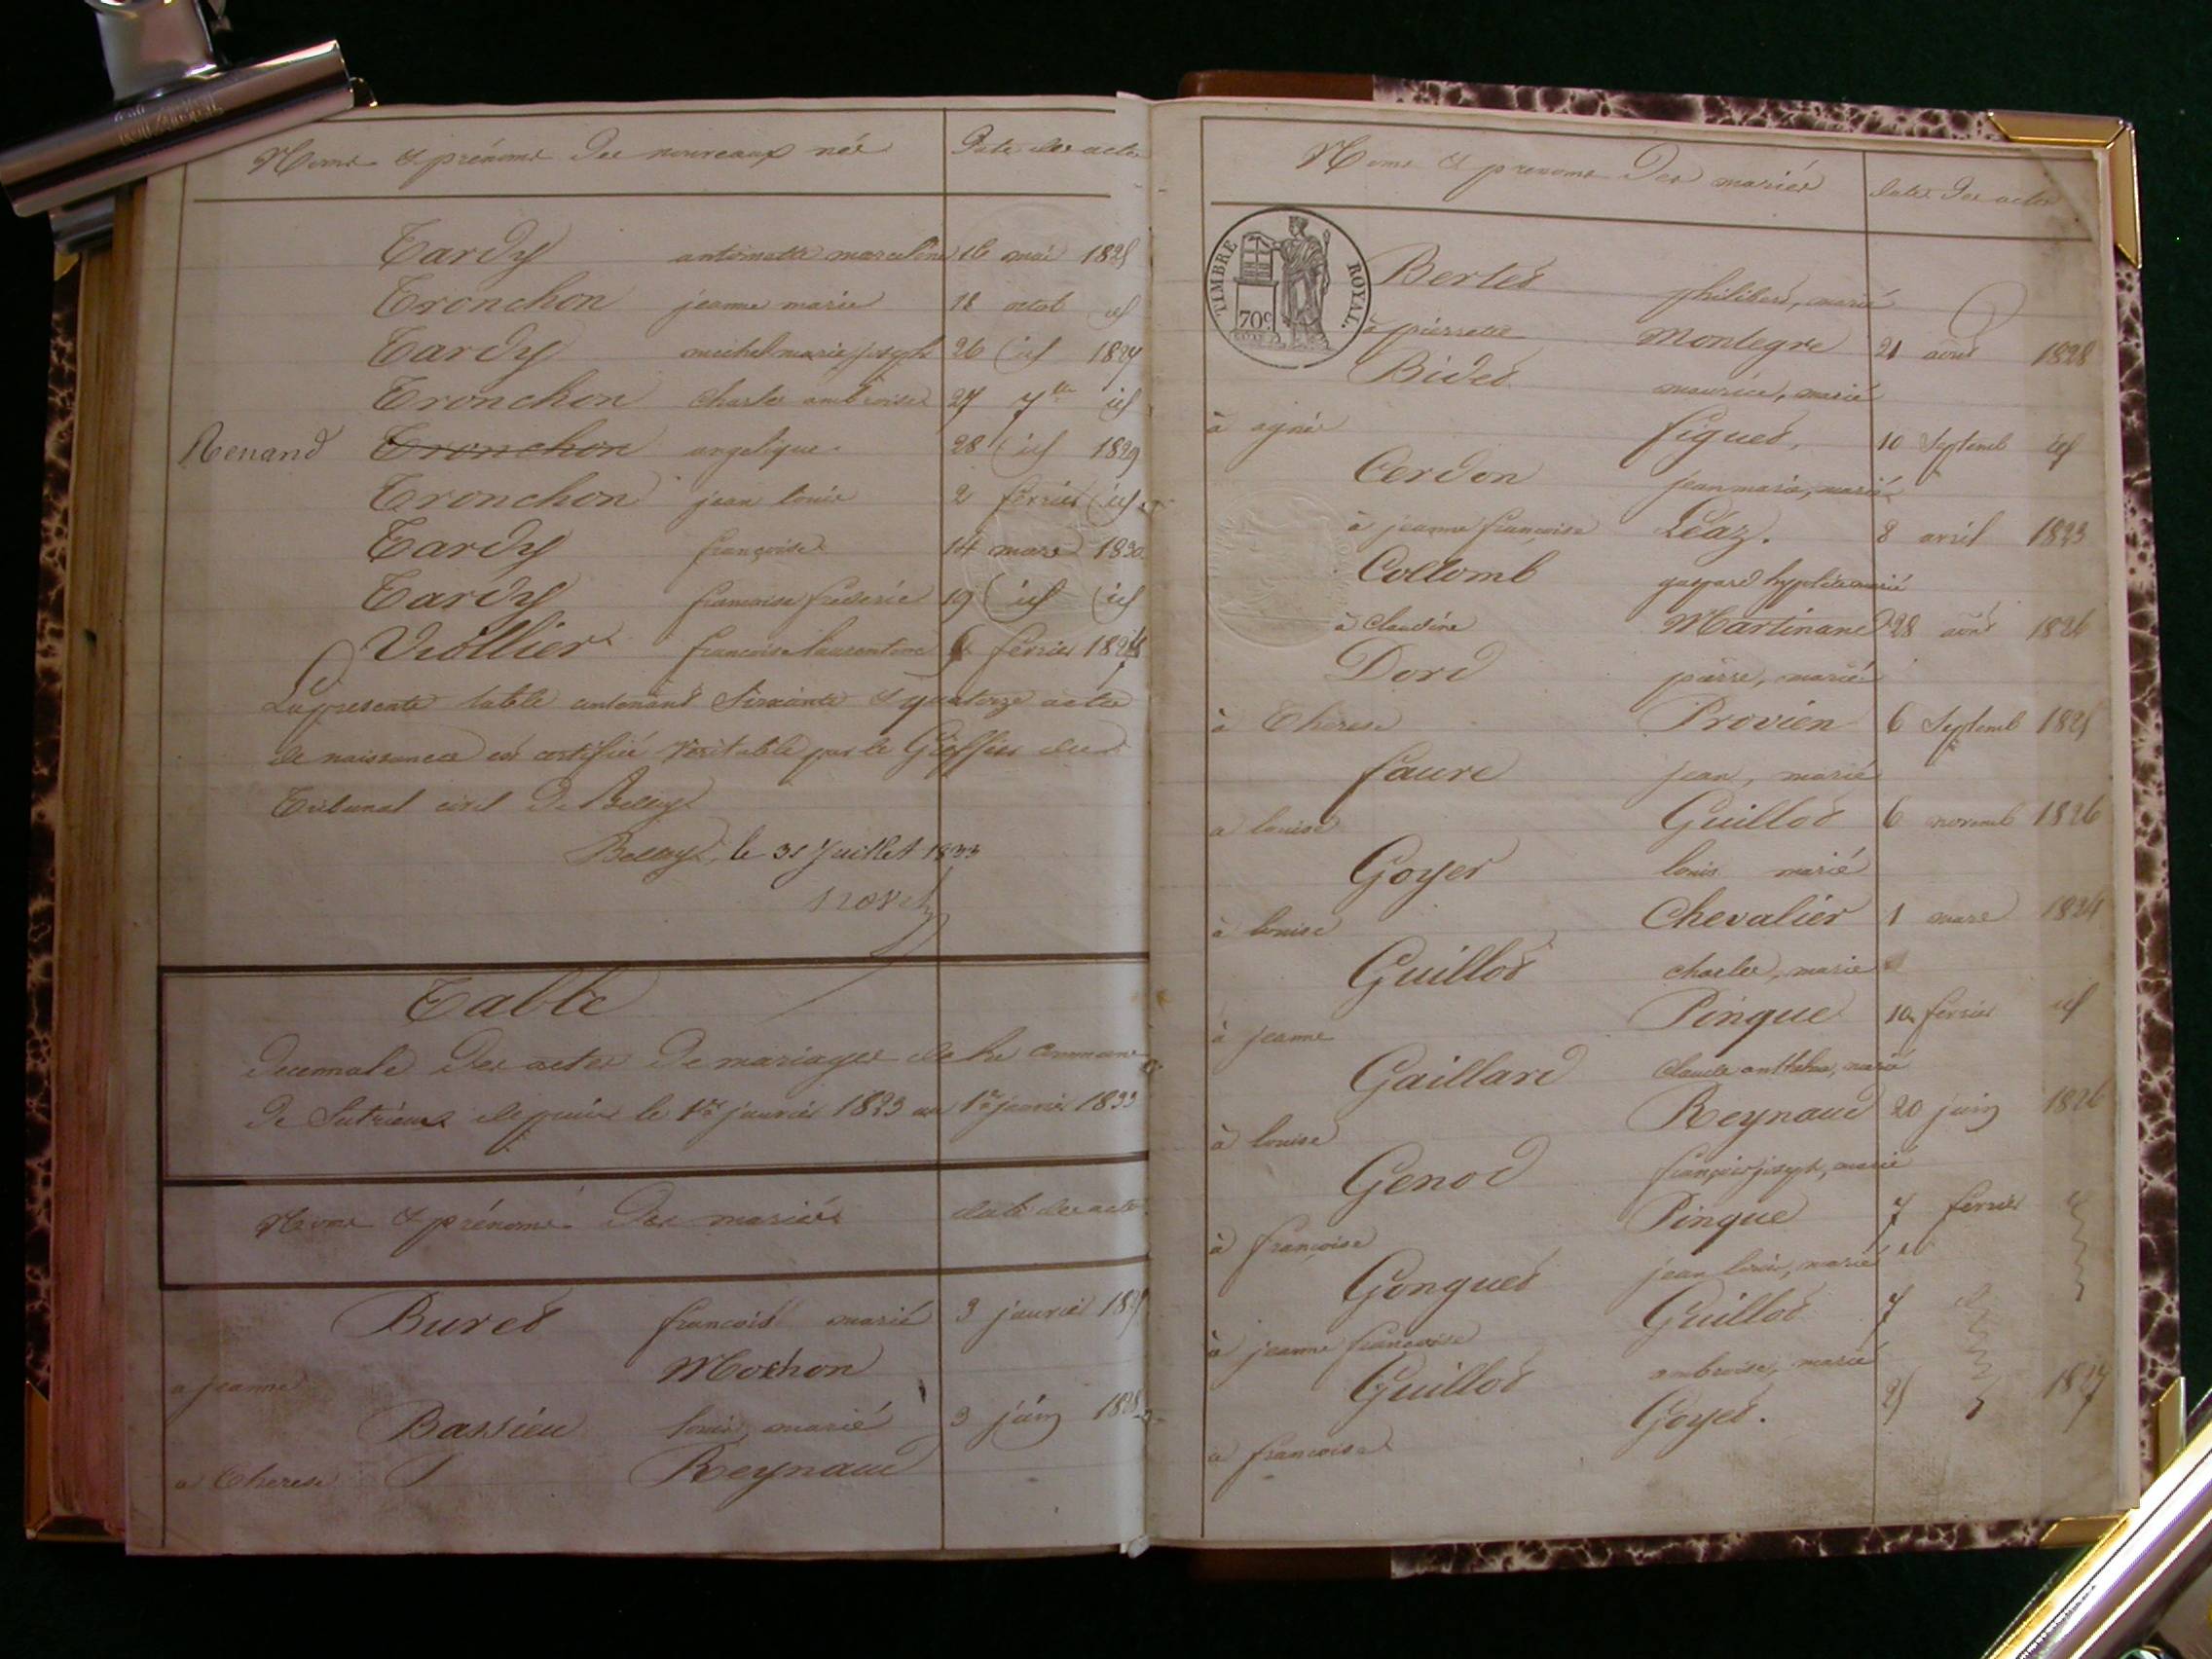 Noms & prénoms des nouveaux nés Date des actes
Tardy antoinette marceline 16 mai 1825
Tronchon jeanne marie 18 octob id
Tardy michel marie joseph 26 id 1827
Tronchon charles ambroise 27 7bre id
Renand Tronchon angelique 28 id 1829
Tronchon jean louis 2 février id
Tardy françoise 14 mars 1830
Tardy francoise frederic 19 id id
Viollier francoise laurentine février
La presente table contenant soixante & quatorze actes
de naissances est certifiée véritable par le Greffier du
Tribunal civil De Belley
Belley, le 31 Juillet 1833
Table
decennale Des actes De mariages de la commune
De Sutrieux depuis le 1er janvier 1823 au 1er janvier 1833
Noms & prénoms Des mariés date des actes
Buret francois marié 3 janvier
a jeanne Mochon
Bassieu louis marié 3 juin 1828
a Therese Reynaud
Noms & prenoms Des mariés dates Des actes
TIMBRE ROYAL.
70c
Bertet philibert, marié
à pierrette Montegre 21 aout 1828
Bidet maurice, marié
à agnès figuet, 10 Septemb id
Cerdon jean marie, marié
à jeanne françoise Léaz. 8 avril 1823
Collomb gaspard hypolite marié
à Claudine Martinand 28 aout 1826
Dord pierre, marié
à Therese Provien 6 Septemb 1825
faure jean, marié
a louise Guillot 6 novemb 1826
Goyet louis marié
à louise Chevalier 1 mars 1824
Guillot charles, marié
à jeanne Pinque 10 février id
Gaillard claude anthelme, marié
à louise Reynaud 20 juin 1826
Genod françois joseph, marié
à françoise Pinque 7 février id
Gonguet jean louis, marié
à jeanne françoise Guillot 7 id
Guillot ambroise, marié
à francoise Goyet. 1827